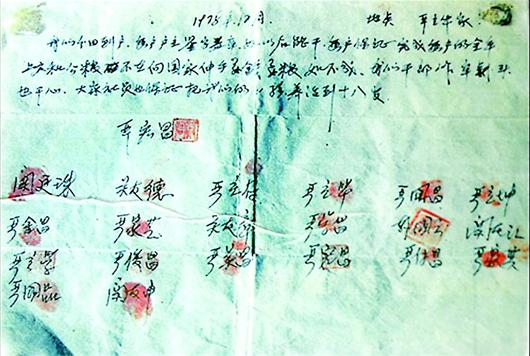 1978年12月 地点 严立华家
我们分田到户每户户主签字盖章如以后能干每户保证完成每户的全年
上交和公粮不在向国家伸手要钱要粮如不成我们干部作牢刹头
也干心大家社员也保证把我们的小孩养活到十八岁
严宏昌
关廷珠 关友德 严立符 严立华 严国昌 严立坤
严金昌 严家芝 关友章 严学昌 韩国云 关友江
严立学 严俊昌 严美昌 严宏昌 严付昌 严家其
严国品 关友申